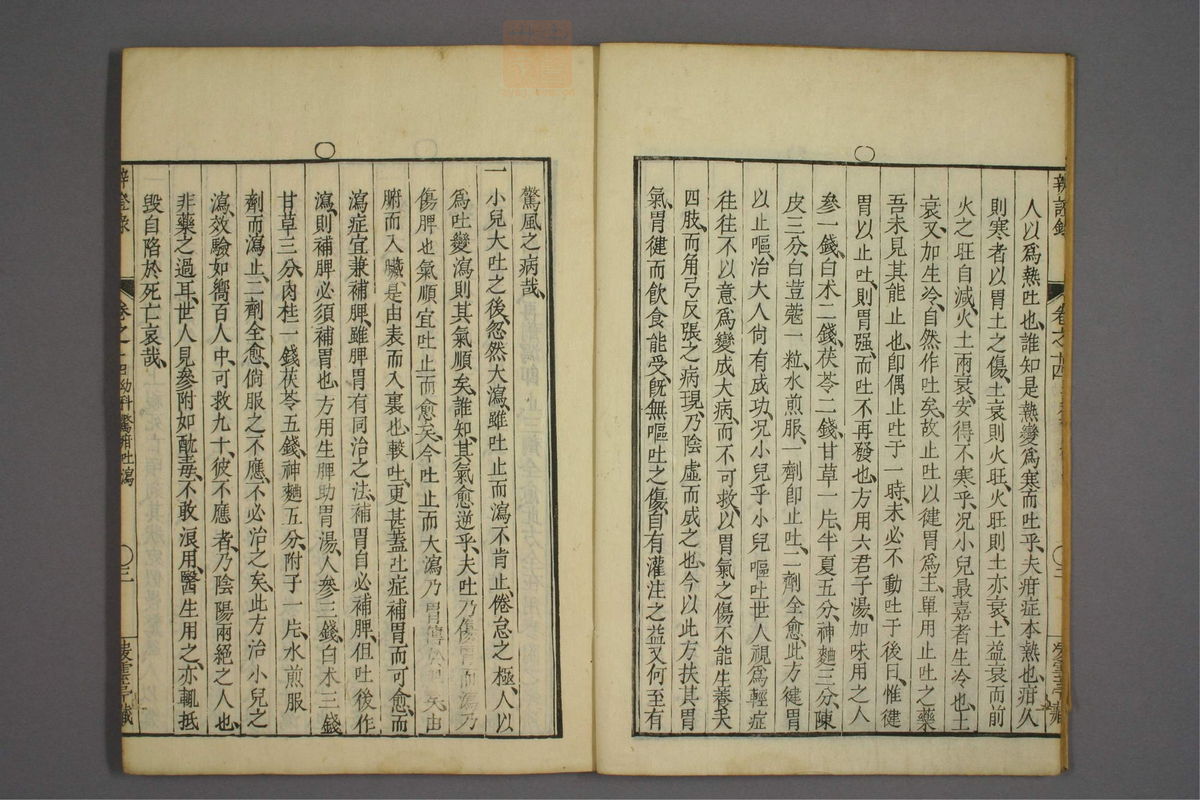 人以爲熱吐也誰知是熱變爲寒而吐乎夫疳症本熱也疳久
則寒者以胃土之傷土衰則火旺火旺則土亦衰土益衰而前
火之旺自減火土兩衰安得不寒乎况小兒最嘉者生冷也土
衰又加生冷自然作吐矣故止吐以健胃爲主單用止吐之藥
吾未見其能止也卽偶止吐于一時未必不動吐于後日惟健
胃以止吐則胃强而吐不再發也方用六君子湯加味用之人
參一錢白朮二錢茯苓二錢甘草一片半夏五分神麯三分陳
皮三分白荳蔻一粒水煎服一劑卽止吐二劑全愈此方健胃
以止嘔治大人尙有成功况小兒乎小兒嘔吐世人視爲輕症
往往不以意爲變成大病而不可救以胃氣之傷不能生養夫
四肢而角弓反張之病現乃陰虛而成之也今以此方扶其胃
氣胃健而飮食能受旣無嘔吐之傷自有灌注之益又何至有
驚風之病哉
一小兒大吐之後忽然大瀉雖吐止而瀉不肯止倦怠之極人以
爲吐變瀉則其氣順矣誰知其氣愈逆乎夫吐乃傷胃而瀉乃
傷脾也氣順宜吐止而愈矣今吐止而大瀉乃胃傳 矣由
腑而入臟是由表而入裏也較吐更甚蓋吐症補胃而可愈而
瀉症宜兼補脾雖脾胃有同治之法補胃自必補脾但吐後作
瀉則補脾必須補胃也方用生脾助胃湯人參三錢白朮三錢
甘草三分肉桂一錢茯苓五錢神麯五分附子一片水煎服一
劑而瀉止二劑全愈倘服之不應不必治之矣此方治小兒之
瀉效驗如嚮百人中可救九十彼不應者乃陰陽兩絕之人也
非藥之過耳世人見參附如酖毒不敢浪用醫生用之亦輒抵
毀自陷於死亡哀哉